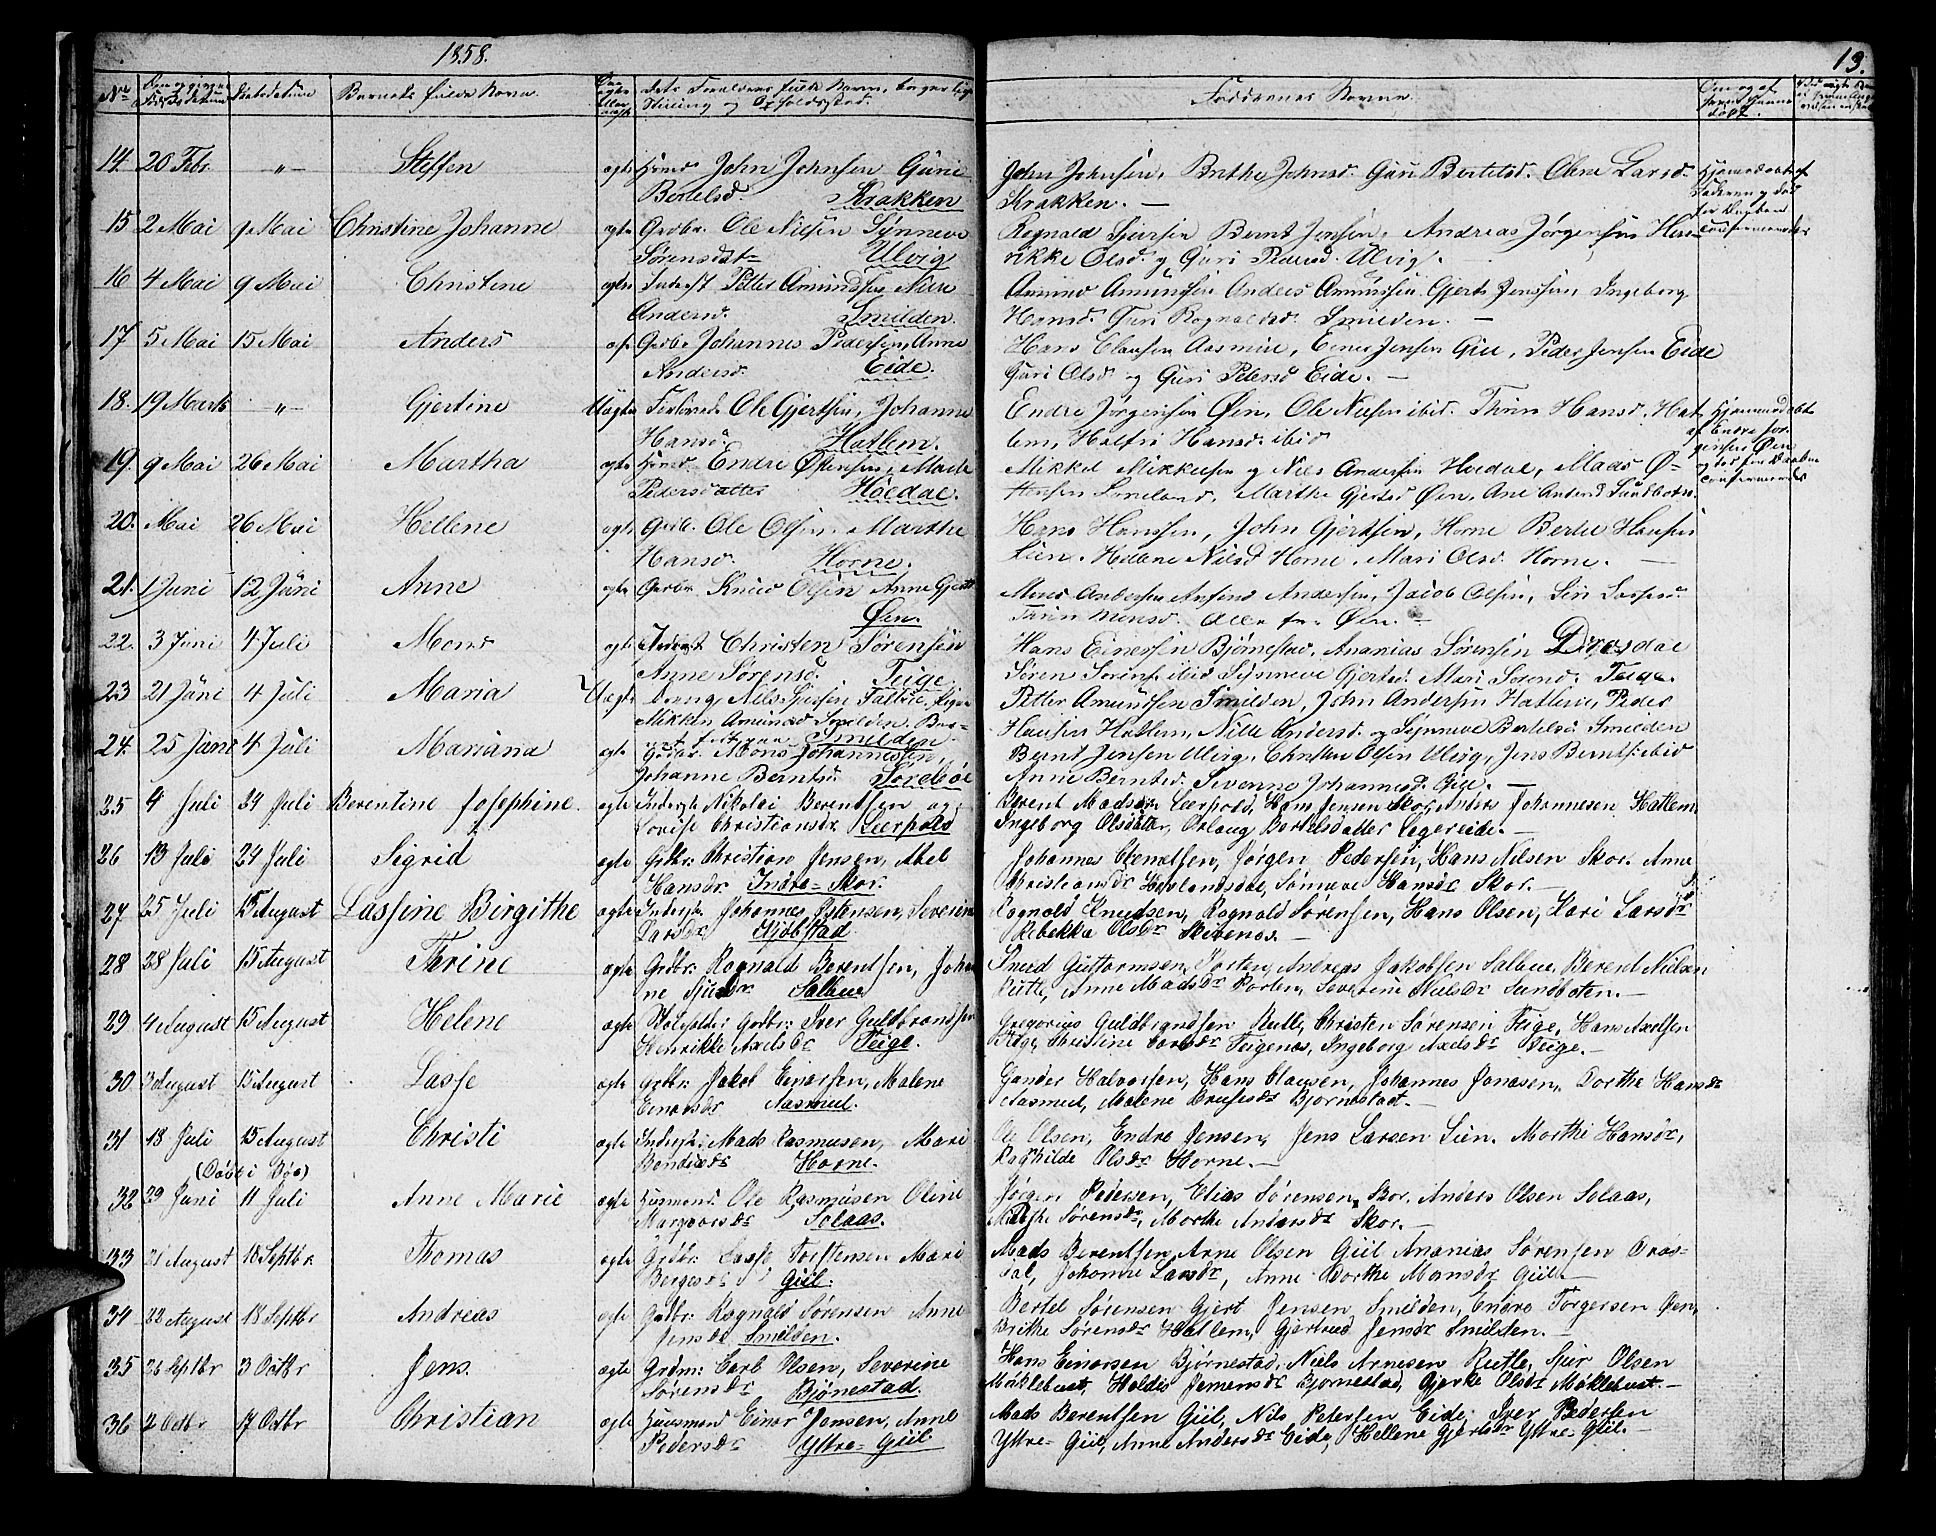 1858.
13.
No
Daabsdatum
Barnets fulde Navn.
Faddernes Navne.
14. 20 Febr. -"- Steffen ægte John Johnsen Guri
Bertelsd. Krakken
John Johnsen, Brithe Johnsd. Guri Bertelsd. Oline Larsd.
Krakken. —
15 2 Mai 9 Mai Christine Johanne ægte Grdbr. Ole Nielsen Synneve
Sørensdt Ulvig
Rognald Sjursen Bernt Jensen, Andreas Jørgensen Hen-
rikke Olsd. og Guri Pedersd. Ulvig.
16 4 Mai 9 Mai Christine ægte Petter Amundsen Nille
Andersd. Smilden.
Amund Amundsen Anders Amundsen Gjert Jensen, Ingeborg
Hansd. Guri Rognaldsd. Smilden. —
17 5 Mai 15 Mai Anders Grdbr Johannes Pedersen, Anne
Andersd. Eide.
Hans Clausen Aasmul, Einer Jensen Giil, Peder Jensen Eide
Guri Olsd og Guri Petersd Eide. —
18. 19 Marts -"- Gjertine Uægte Ole Gjertsen, Johanne
Hansd. Hatlem.
Endre Jørgensen Øen, Ole Nielsen ibid. Thrin Hansd. Hat-
lem, Halfri Hansd. ibid
Hjemmedøbt
af Endre Jør-
gensen Øen
19. 9 Mai 26 Mai Martha ægte Endre Østensen, Made
Pedersdatter Høedal.
Mikkel Mikkelsen og Niels Andersen Hoedal, Mads Ø-
stensen Løneland, Marthe Gjertsd Øen, Ane Antond Sundboten.
20. Mai 26 Mai Hellene ægte Grdb. Ole Olsen. Marthe
Hansd. Horne.
Hans Hanssen, John Gjertsen, Horne Bertil Hansen
Lien. Hellene Nielsd Horne. Mari Olsd. Horne. —
21. 1 Juni 12 Juni Anne ægte Grdbr Knud Olsen Anne Gjertsd
Øen.
Mons Andersen Anfind Andersen, Jacob Olsen, Siri
Thrin Monsd. Alle fra Øen. —
22. 3 Juni 4 Juli Mons ægte Christen Sørensen
Anne Sørensd. Teige.
Hans Einersen Bjørnestad, Ananias Sørensen Drøsdal
Søren Sørens. ibid Synneve Gjertsd. Mari Sørensd. Teige.
23 21 Juni 4 Juli Maria Uægte Dreng Niels Sjursen
Mikken Amundsd Smilden.
Smilden
Petter Amundsen Smilden, John Andersen Hatlem, Peder
Hansen Hatlem, Nille Andersd. og Synneve Bertelsd. Smilden
24. 25 Juni 4 Juli Mariana ægte Grdbr. Mons Johannessen
Johanne Berntsd. Sørebøe
Bernt Jensen Ulvig, Christen Olsen Ulvig, Jens Berntsen ibid
Anne Berntsd. Sivenne Johannesd. Giil. —
25 4 Juli 24 Juli Berentine Josephine. ægte Inderste Nikolai Berentsen og
Lovise Christiansdr Leerpold
Berent Madsen Leerpold, Hans Jensen Skor, Anders Johannesen Hatlem,
Ingeborg Olsdatter, Oslaug Bertelsdatter Eegereide. —
26 13 Juli 24 Juli Sigrid ægte Grdbr: Christian Jensen, Abel
Hansdr. Indre-Skor.
Johannes Clemetsen, Jørgen Pedersen, Hans Nilsen Skor. Anne
Christiansdr Herlandsdal, Sønneve Hansdr Skor. —
27 25 Juli 15 August Lassine Birgithe ægte Inderste Johannes Østensen, Severine
Larsdr
Rognald Knudsen, Rognald Sørensen, Hans Olsen, Kari Larsdr
Rebekka Olsdr Skivenes. —
28 28 Juli 15 August Thrine ægte Grdbr: Rognald Berentsen, Johan
ne Sjursdr Salbue
Knud Guttormsen, Porten, Andreas Jakobsen Salbue, Berent Nielsen
Rutle, Anne Madsdr Porten, Severine Nielsdr Sundboten. —
29 4 August 15 August Helene ægte Grdbr: Iver Guldbrandsen
Henrikke Axelsdr Teige.
Gregorius Guldbrandsen Rutle, Christen Sørensen Teige, Hans Axelsen
Teige, Christine Larsdr Teigenes, Ingeborg Axelsdr Teige. —
30 3 August 15 August Lasse ægte Grdbr: Jakob Einarsen, Malene
Einarsdr Aasmul.
Gunder Halvorsen, Hans Clausen, Johannes Jonasen, Dorthe Hansdr
Aasmul, Malene Brufisdr Bjørnestadt. —
31 18 Juli 15 August Christi ægte Inderst: Mads Rasmusen, Mari
Bendixdr Horne.
(Døbt i Bøe)
Ole Olsen, Endre Jensen, Jens Larsen Lien. Morthe Hansdr,
Ragnhilde Olsdr Horne. —
32 29 Juni 11 Juli Anne Marie ægte Huusmand. Ole Rasmusen Oline
Solaas.
Jørgen Pedersen, Elias Sørensen Skor. Anders Olsen Solaas,
Sørensdr, Morthe Andersdr Skor. —
33 21 August 18 Septbr Thomas ægte Grdbr: Lasse Torstensen Mari
Børgesdr Giil.
Mads Berentsen Arne Olsen Giil Ananias Sørensen Drøs-
dal, Johanne Larsdr, Anne Dorthe Monsdr Giil. —
34 22 August 18 Septbr Andreas ægte Grdbr: Rognald Sørensen Anne
Jensdr Smilden.
Bertel Sørensen Gjert Jensen Smilden, Endre Torgersen Øen,
Brithe Sørensdr Hatlem, Gjertrud Jensdr Smilden. —
35 26 Septbr 3 Octbr Jens. ægte Grdm: Carl Olsen, Severine
Sørensdr Bjønestad.
Hans Einarsen Bjørnestad, Niels Arnesen Rutle, Sjur Olsen
Mäklebust, Haldis Jemensdr Bjørnestad, Gjerke Olsdr Mäklebust. —
36 2 Octbr 17 Octbr Christian ægte Huusmand Einar Jensen, Anne
Pedersdr Yttre-Giil
Mads Berentsen Giil, Nils Petersen Eide, Iver Pedersen
Yttre-Giil, Anne Andersdr Eide, Hellene Gjertsdr Yttre-Giil. —